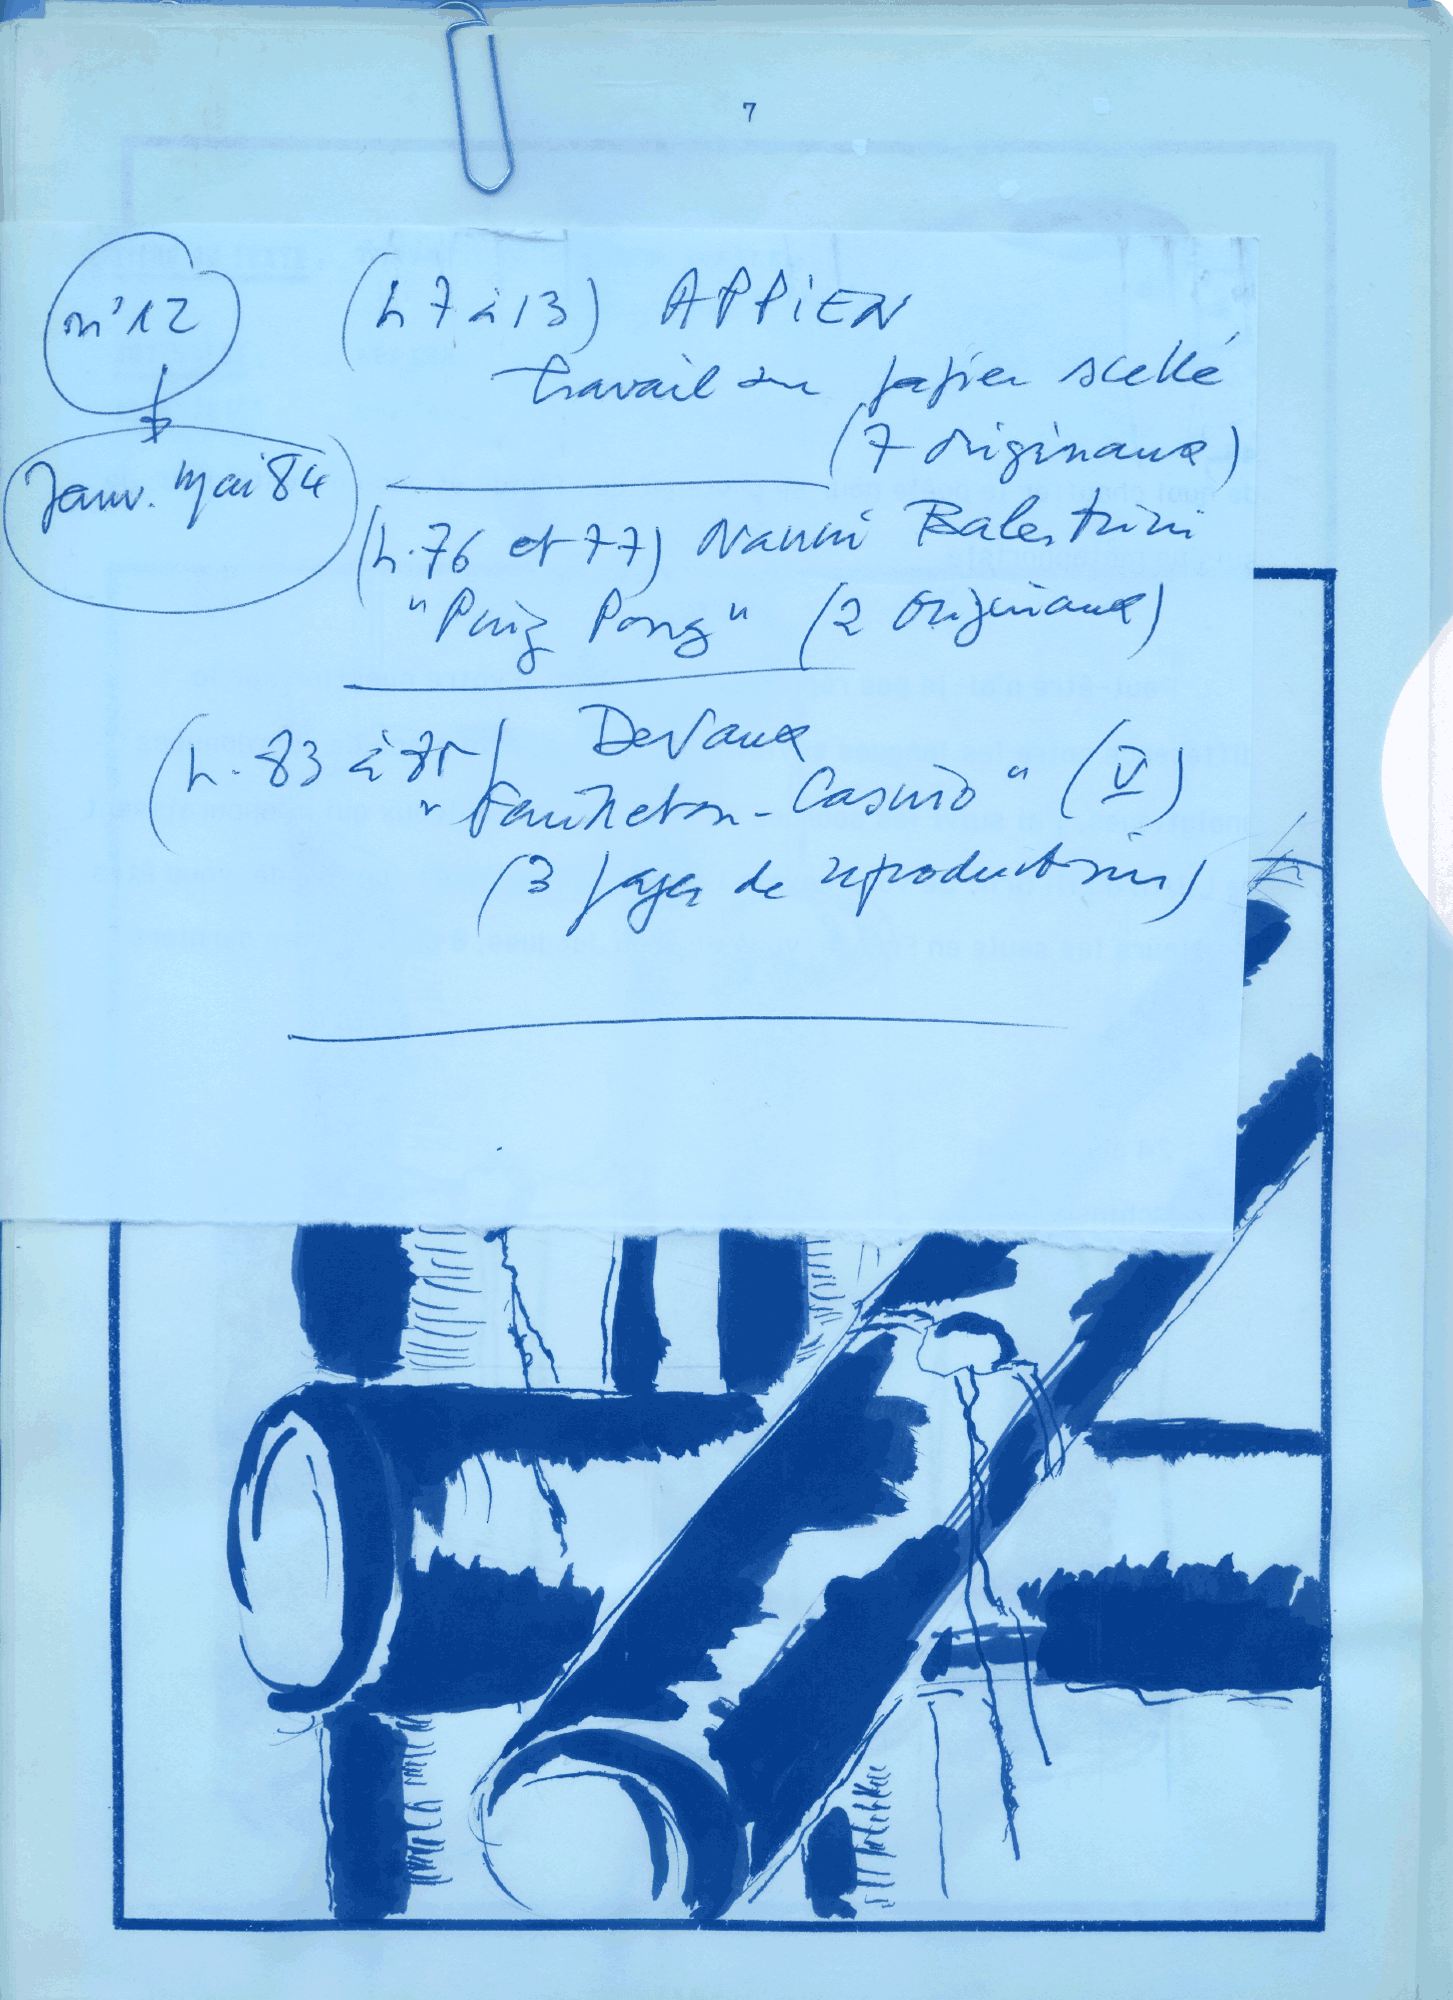 7
n°12
(p. 7 à 13) APPiEN
travail sur papier scellé
(7 originaux)
Janv. Mai 84
(p. 76 et 77) Nanni Balestrini
"Ping Pong" (2 originaux)
(p. 83 à 85) Devaux
(V)
(3 pages de reproductions)